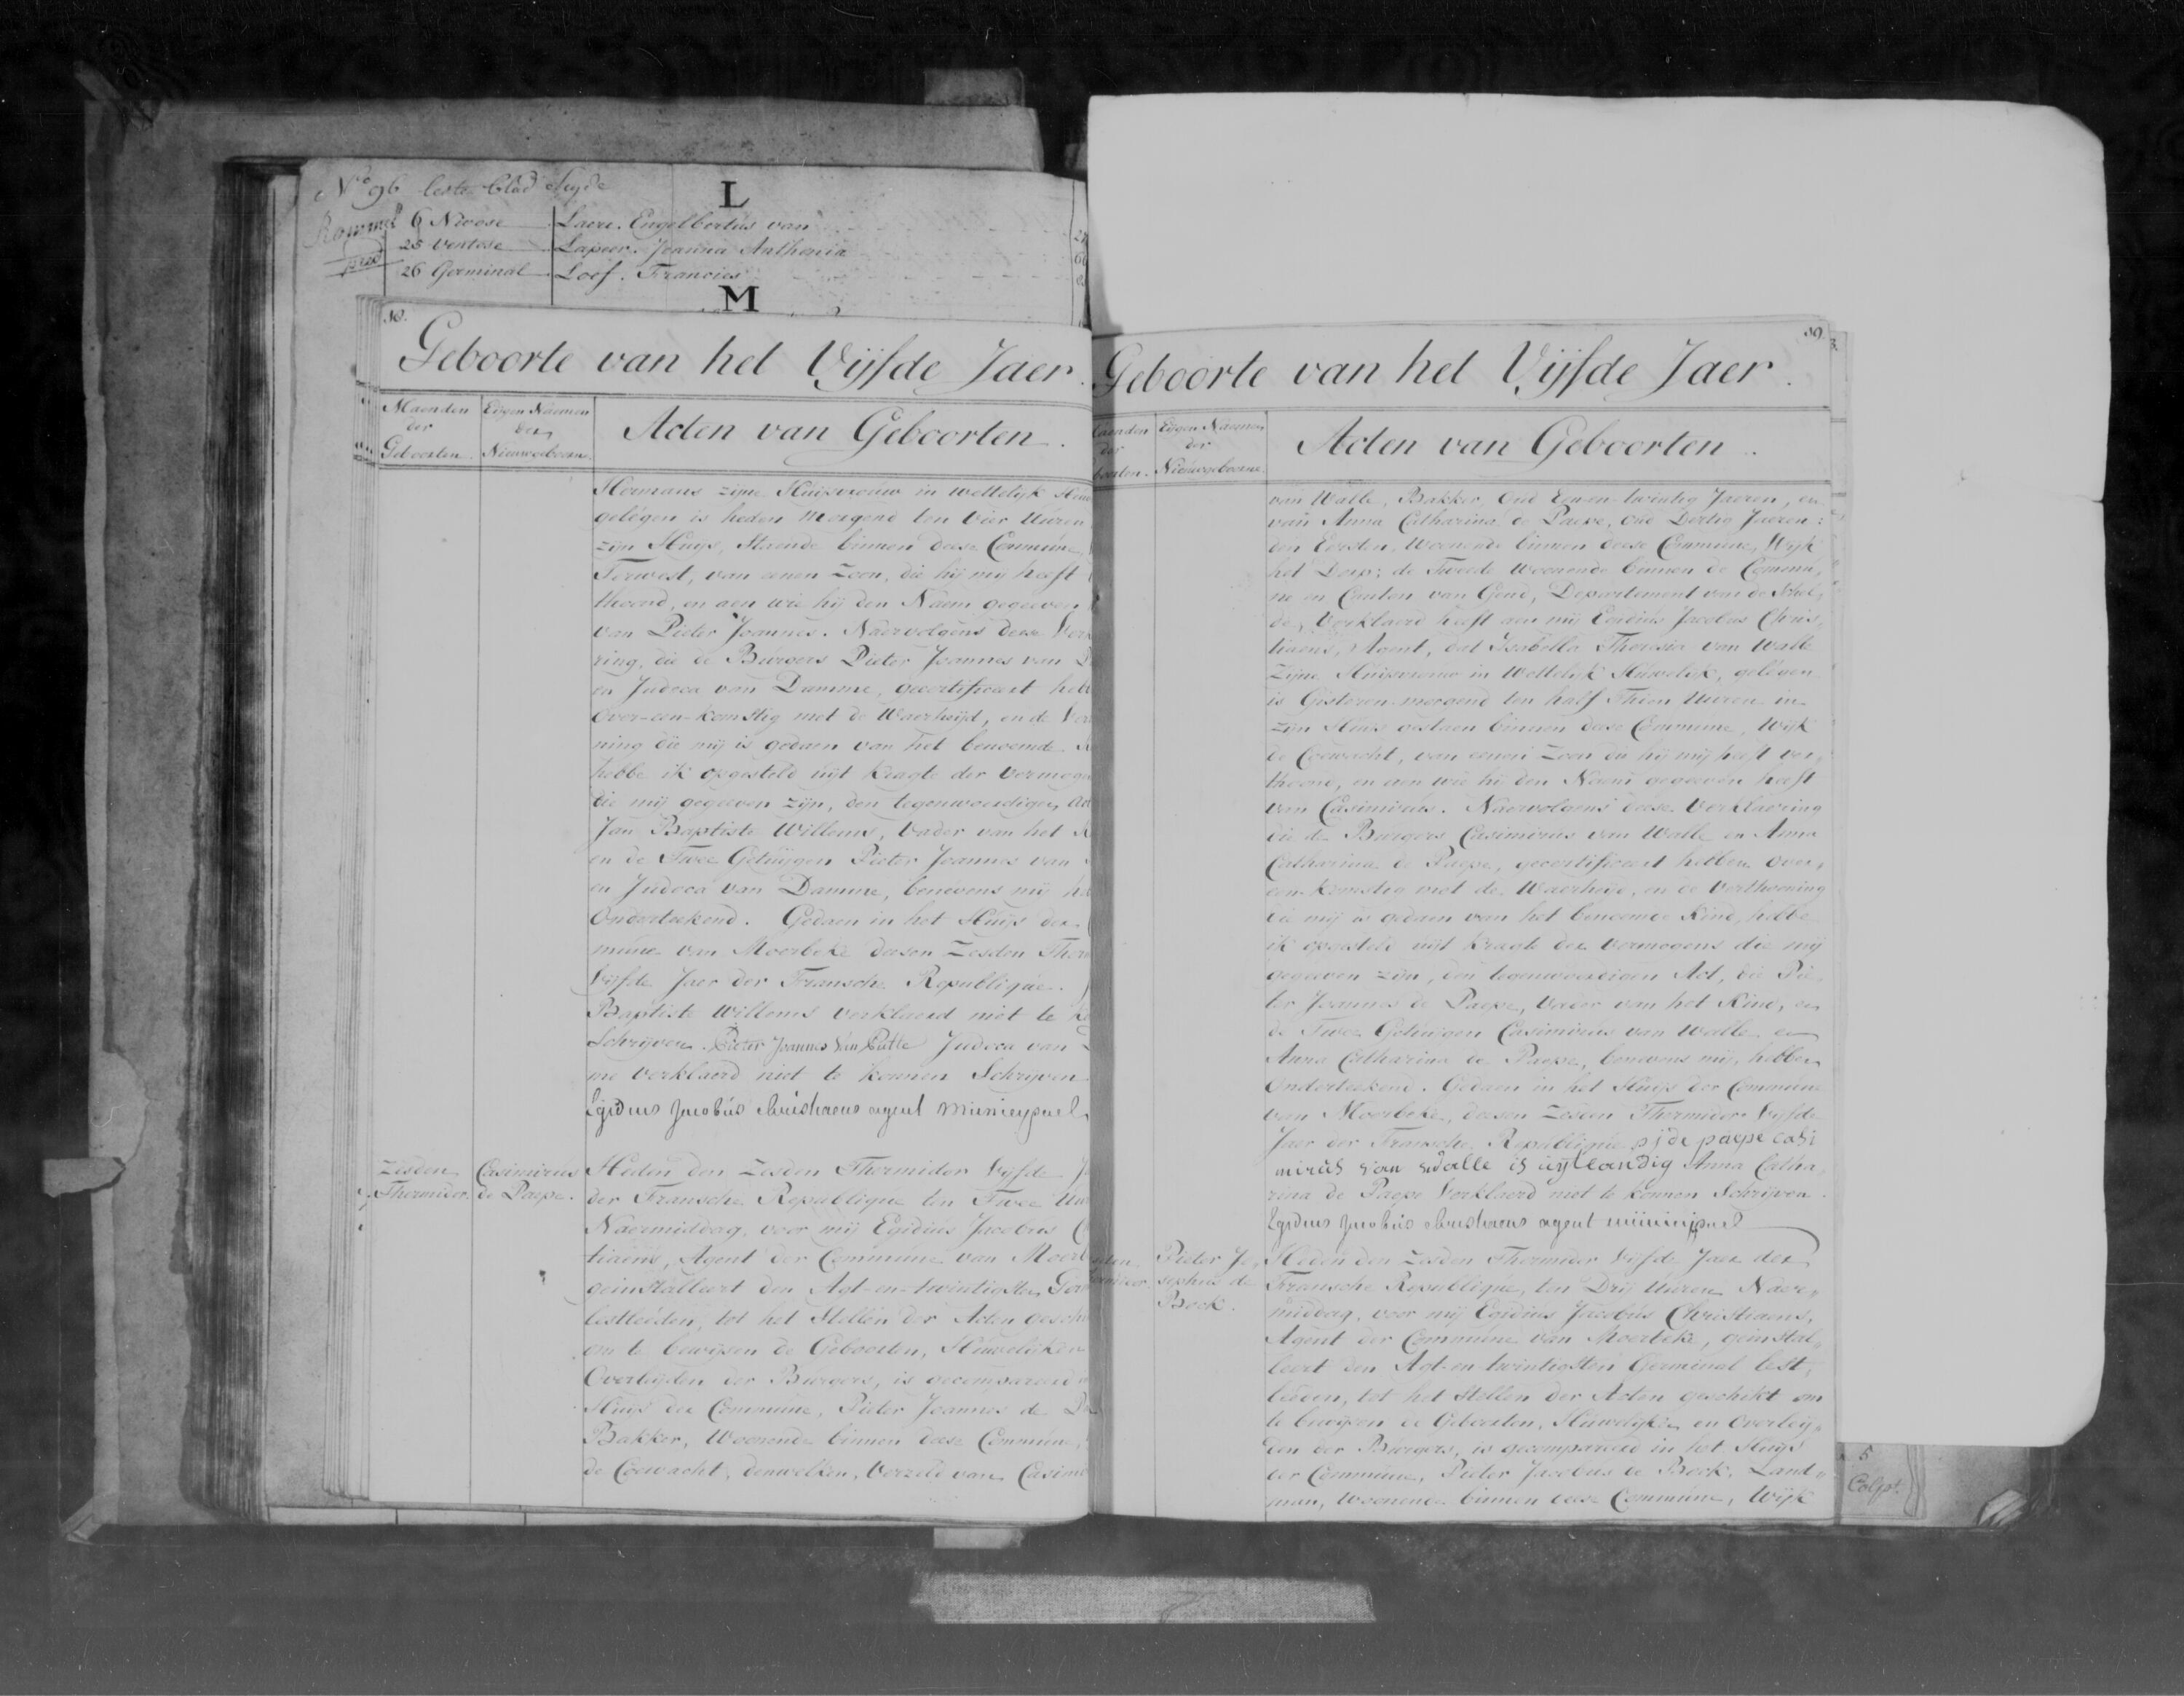 N.o 96 leste blad Seyde
L
6 Nivose Laere. Engelbertus van
25 Ventose Lapeer. Joanna Anthonia
26 Germinal Loef. Francies
M
Geboorte van het Vijfde Jaer.
Maenden der Geboorten.
Eijgen Naemen der Nieuwgeboorne.
Acten van Geboorten.
Hermans zijne Huijsvrouw in wettelijk
gelégen is heden Morgend ten Vier Uuren
zijn Huijs, Staende binnen deese Commúne,
Terwest, van eenen Zoon, die hij mij heeft
thoond, en aen wie hij den Naem gegeeven
van Pieter Joannes. Naervolgens deese
ring, die de Burgers Pieter Joannes van
en Judoca van Damme, gecertificeert
Over-een-komstig met de Waerheijd, en de
ning die mij is gedaen van het benoemde
hebbe ik opgesteld uijt kragte der
die mij gegeeven zijn, den tegenwoordigen
Jan Baptiste Willems, Vader van het
en de Twee Getuijgen Pieter Joannes van
en Judoca van Damme, benevens mij
Onderteekend. Gedaen in het Huijs der
mune van Moerbeke deesen Zesden
Vijfde Jaer der Fransche Republique.
Baptiste Willems verklaerd niet te
Schrijven. Pieter Joannes Van Putte Judoca van
me verklaerd niet te konnen Schrijven
Egidius Jacobús Christiaens agent Municipael
Zesden Thermidor.
Casimirus de Paepe.
Heden den Zesden Thermidor Vijfde
der Fransche Republique ten Twee
Naermiddag, voor mij Egidius Jacobus
tiaens, Agent der Commúne van
geinstalleert den Agt-en-twintigsten
lestleéden, tot het Stellen der Acten
om te bewijsen de Geboorten, Húwelijken
Overlijden der Burgers, is gecompareerd
Huijs der Commune, Pieter Joannes de
Bakker, Woonende binnen deese Commúne,
de Coewacht, denwelken, Verzeld van
Geboorte van het Vijfde Jaer.
Eijgen Naemen der Nieuwgeboorne.
Acten van Geboorten.
van Walle, Bakker, Oud Een-en-twintig Jaeren, en
van Anna Catharina de Paepe, Oud Dertig Jaeren:
den Eersten, Woonende binnen deese Commune, Wijk
het Dorp; de Tweede Woonende binnen de Commu,
ne en Canton van Gend, Departement van de Schel,
de, Verklaerd heeft aen mij Egidius Jacobus Chris,
tiaens, Agent, dat Isabella Theresia van Walle
Zijne Huijsvrouw in Wettelijk Húwelijk, gelégen
is Gisteren-morgend ten half Thien Uuren in
zijn Huijs gestaen binnen deese Commune, Wijk
de Coewacht, van eenen Zoon die hij mij heeft ver,
thoond, en aen wie hij den Naem gegeeven heeft
van Casimirus. Naervolgens deese Verklaering
die de Burgers Casimirus van Walle en Anna
Catharina de Paepe, gecertificeert hebben Over,
een-komstig met de Waerheijd, en de Verthooning
die mij is gedaen van het benoemde Kind, hebbe
ik opgesteld uijt kragte der Vermogens die mij
gegeeven zijn, den tegenwoordigen Act, die Pie
ter Joannes de Paepe, Vader van het Kind, en
de Twee Getuijgen Casimirus van Walle en
Anna Catharina de Paepe, benevens mij, hebben
Onderteekend. Gedaen in het Huijs der Commúne
van Moerbeke, deesen Zesden Thermidor Vijfde
Jaer der Fransche Republique p j de paepe casi
mirus van walle is uytlandig Anna Catha,
rina de Paepe Verklaerd niet te konnen Schrijven.
Egidius Jacobús Christiaens agent municipael
Pieter Jo,
sephus de
Bock.
Heden den Zesden Thermidor Vijfde Jaer der
Fransche Republique, ten Drij Uuren Naer,
middag, voor mij Egidius Jacobús Christiaens,
Agent der Commúne van Moerbeke, geinstal,
leert den Agt-en-twintigsten Germinal lest,
leeden, tot het Stellen der Acten geschikt om
te bewijsen de Geboorten, Húwelijken en Overlij,
den der Burgers, is gecompareerd in het Huijs
der Commúne, Pieter Jacobus de Bock, Land,
man, Woonende binnen deese Commúne, Wijk
5
Colpt.